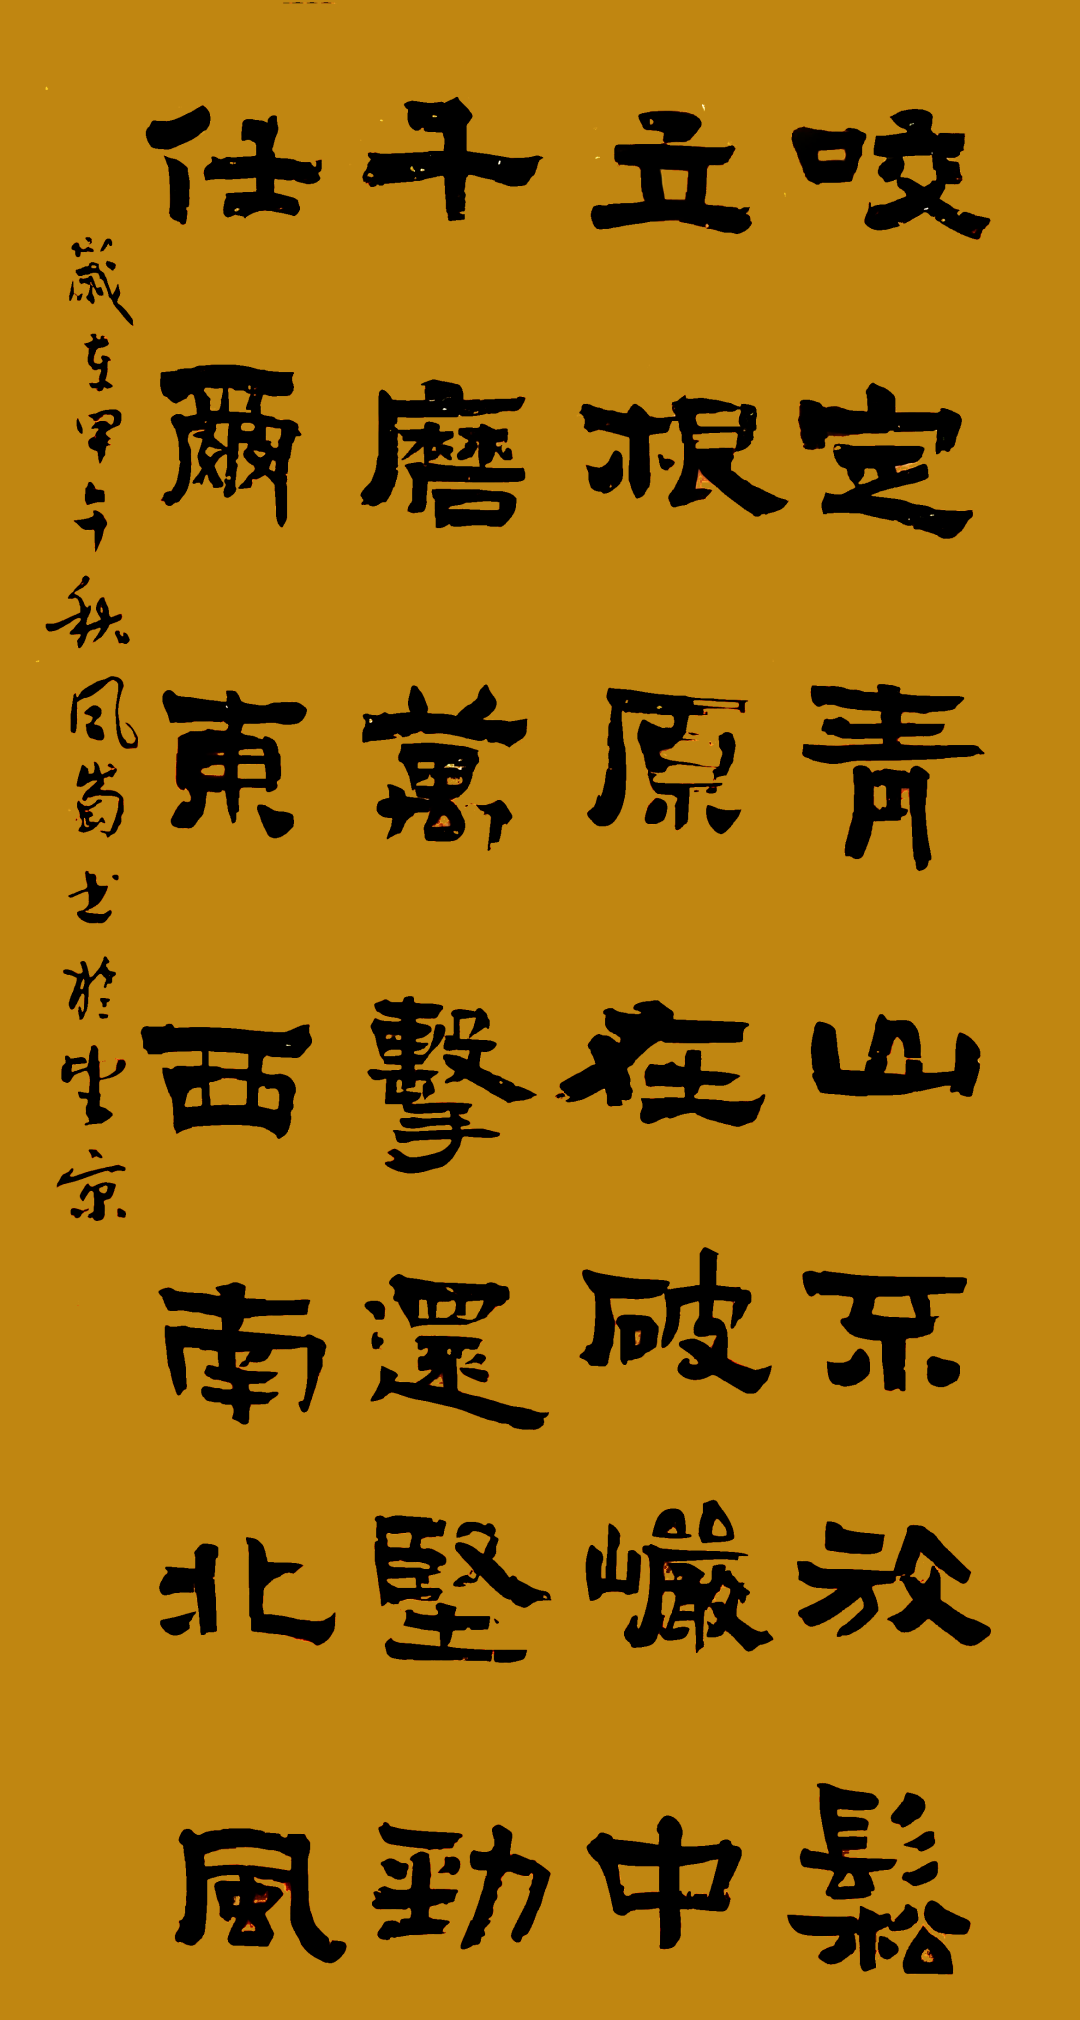 咬定青山不放鬆
立根原在破巖中
千磨萬擊還堅勁
任爾東西南北風
歲在甲午秋風崗書於北京